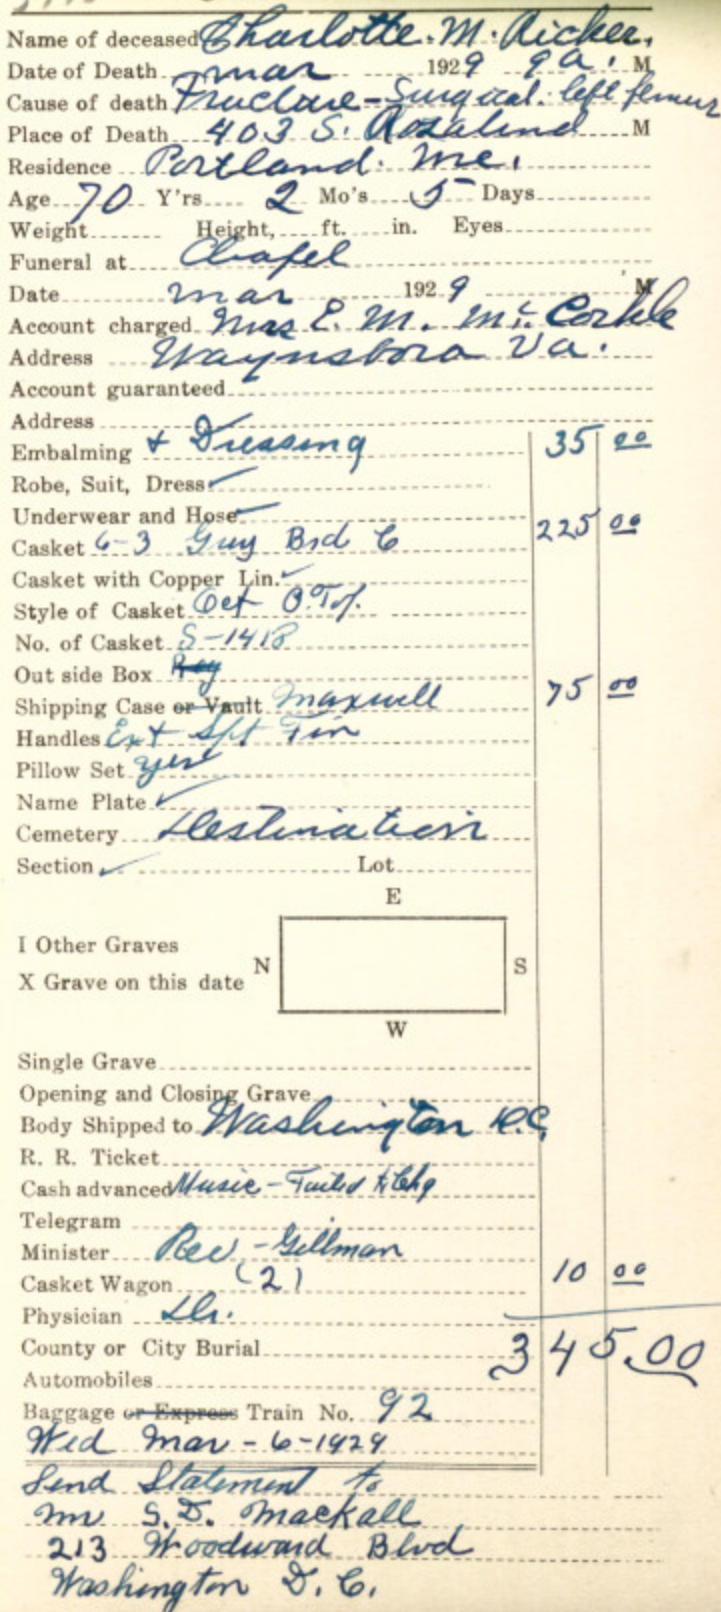 Name of deceased Charlotte. M. Ricker.
Date of Death Mar 1929 9 a. M
Cause of death Fracture - Surgical. left femur
Place of Death 403 S. Rosalind M
Residence Portland. Me.
Age 70 Y'rs 2 Mo's 5 Days
Weight Height, ft. in. Eyes
Funeral at Chapel
Date Mar 1929 M
Account charged Mrs E. M. Mc. Corkle
Address Waynsboro Va.
Account guaranteed
Address
Embalming + Dressing 35 00
Robe, Suit, Dress ✓
Underwear and Hose ✓
Casket 6-3 Brd C 225 00
Casket with Copper Lin. ✓
Style of Casket Oct
No. of Casket S-1418
Out side Box
Shipping Case or Vault Maxwell 75 00
Handles Ext
Pillow Set yes
Name Plate ✓
Cemetery Destination
Section ✓ Lot
E
I Other Graves
N S
X Grave on this date
W
Single Grave
Opening and Closing Grave
Body Shipped to Washington D.C.
R. R. Ticket
Cash advanced Music - Failed to Chg
Telegram
Minister Rev - Gillman
Casket Wagon (2) 10 00
Physician Dr.
County or City Burial 345.00
Automobiles
Baggage or Express Train No. 92
Wed Mar - 6 - 1929
Send Statement to
Mr S.D. Mackall
213 Woodward Blvd
Washington D. C.